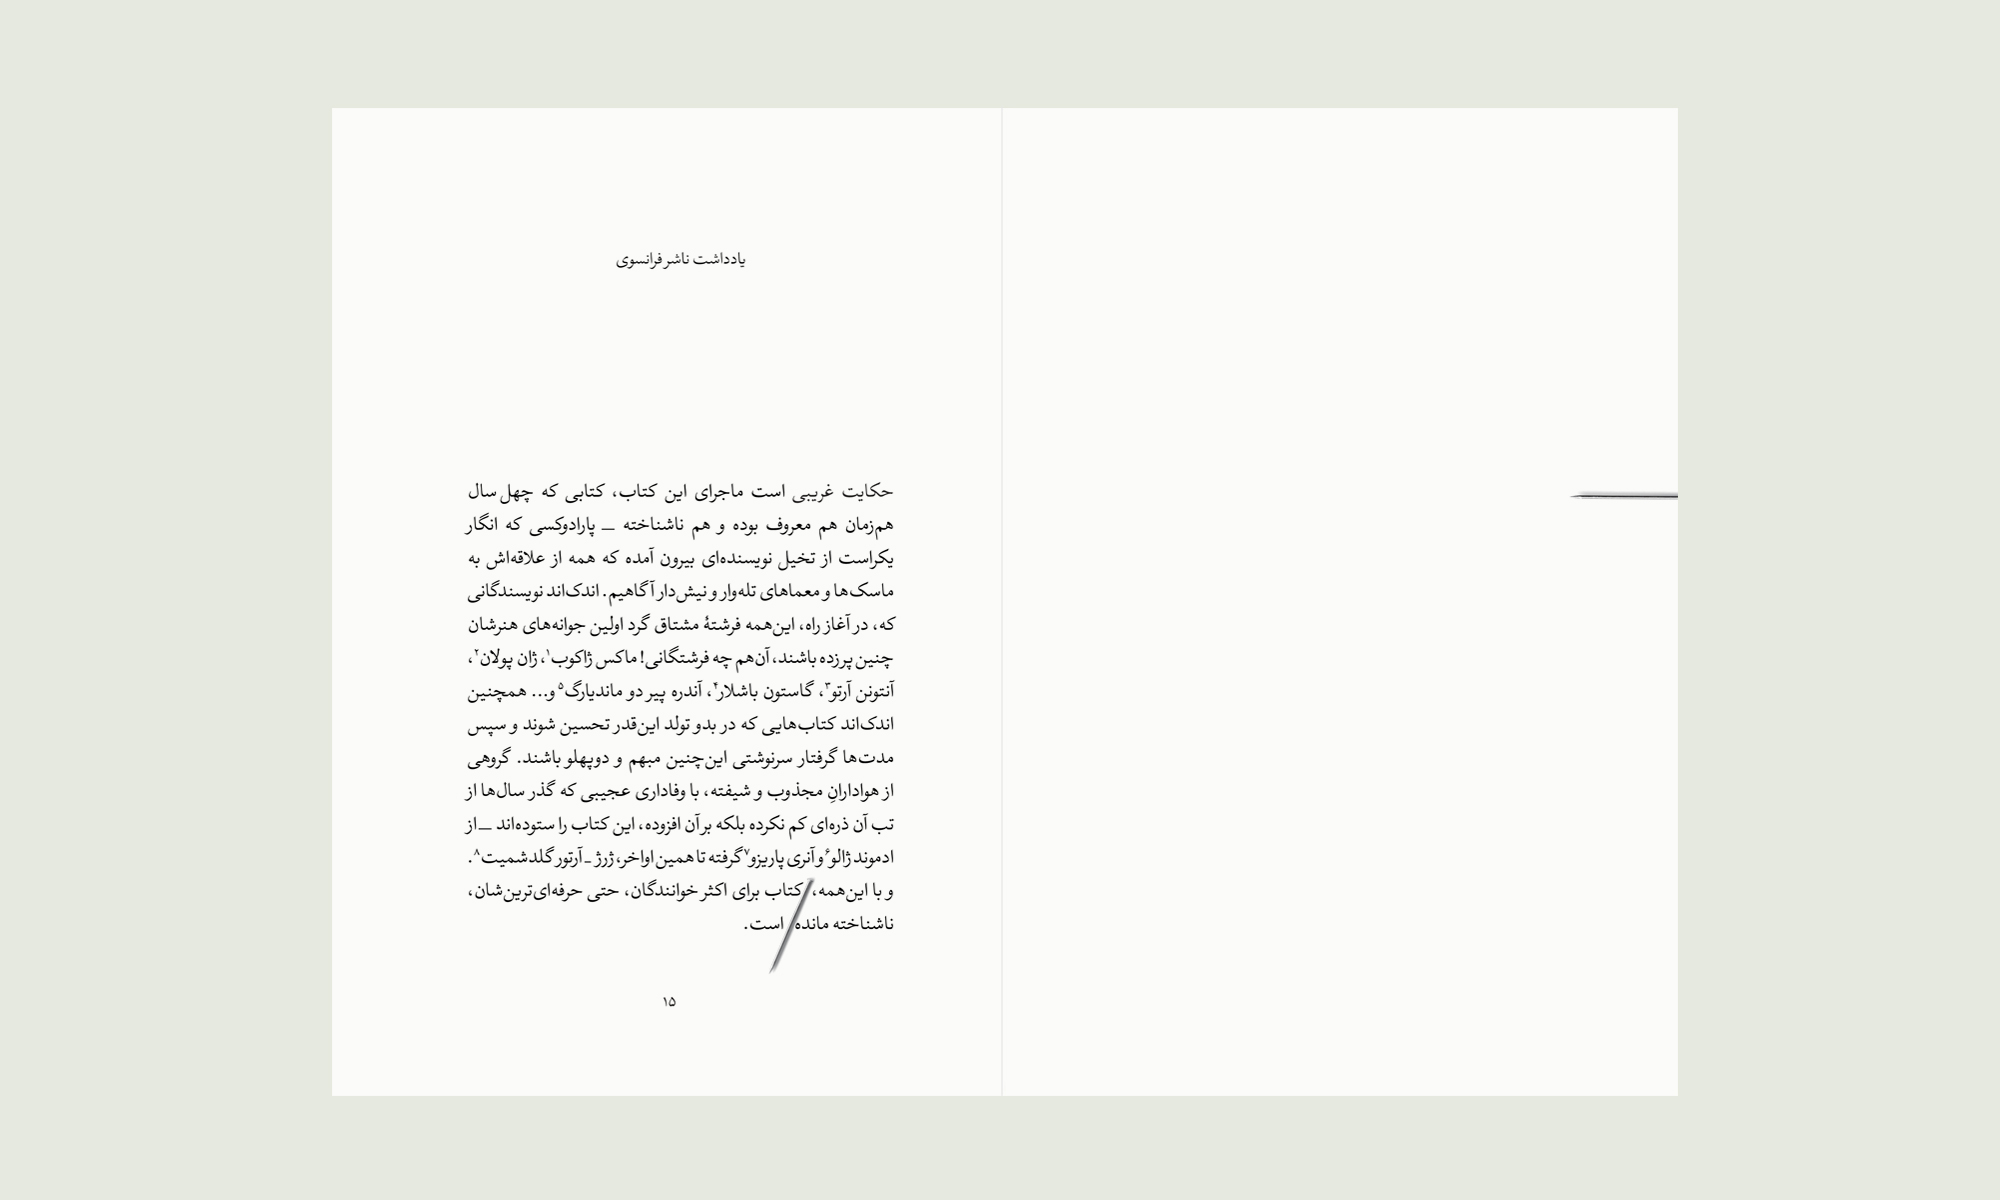 یادداشت ناشر فرانسوی
حکایت غریبی است ماجرای این کتاب، کتابی که چهل سال
هم‌زمان هم معروف بوده و هم ناشناخته — پارادوکسی که انگار
یکراست از تخیل نویسنده‌ای بیرون آمده که همه از علاقه‌اش به
ماسک‌ها و معماهای تله‌وار و نیش‌دار آگاهیم. اندک‌اند نویسندگانی
که، در آغاز راه، این‌همه فرشتهٔ مشتاق گرد اولین جوانه‌های هنرشان
چنین پر زده باشند، آن‌هم چه فرشتگانی! ماکس ژاکوب۱، ژان پولان۲،
آنتونن آرتو۳، گاستون باشلار۴، آندره پیر دو ماندیارگ۵ و... همچنین
اندک‌اند کتاب‌هایی که در بدو تولد این‌قدر تحسین شوند و سپس
مدت‌ها گرفتار سرنوشتی این‌چنین مبهم و دوپهلو باشند. گروهی
از هوادارانِ مجذوب و شیفته، با وفاداری عجیبی که گذر سال‌ها از
تب آن ذره‌ای کم نکرده بلکه بر آن افزوده، این کتاب را ستوده‌اند — از
ادموند ژالو۶ و آنری پاریزو۷ گرفته تا همین اواخر، ژرژ ـ آرتور گلدشمیت۸.
و با این‌همه، کتاب برای اکثر خوانندگان، حتی حرفه‌ای‌ترین‌شان،
ناشناخته مانده است.
۱۵